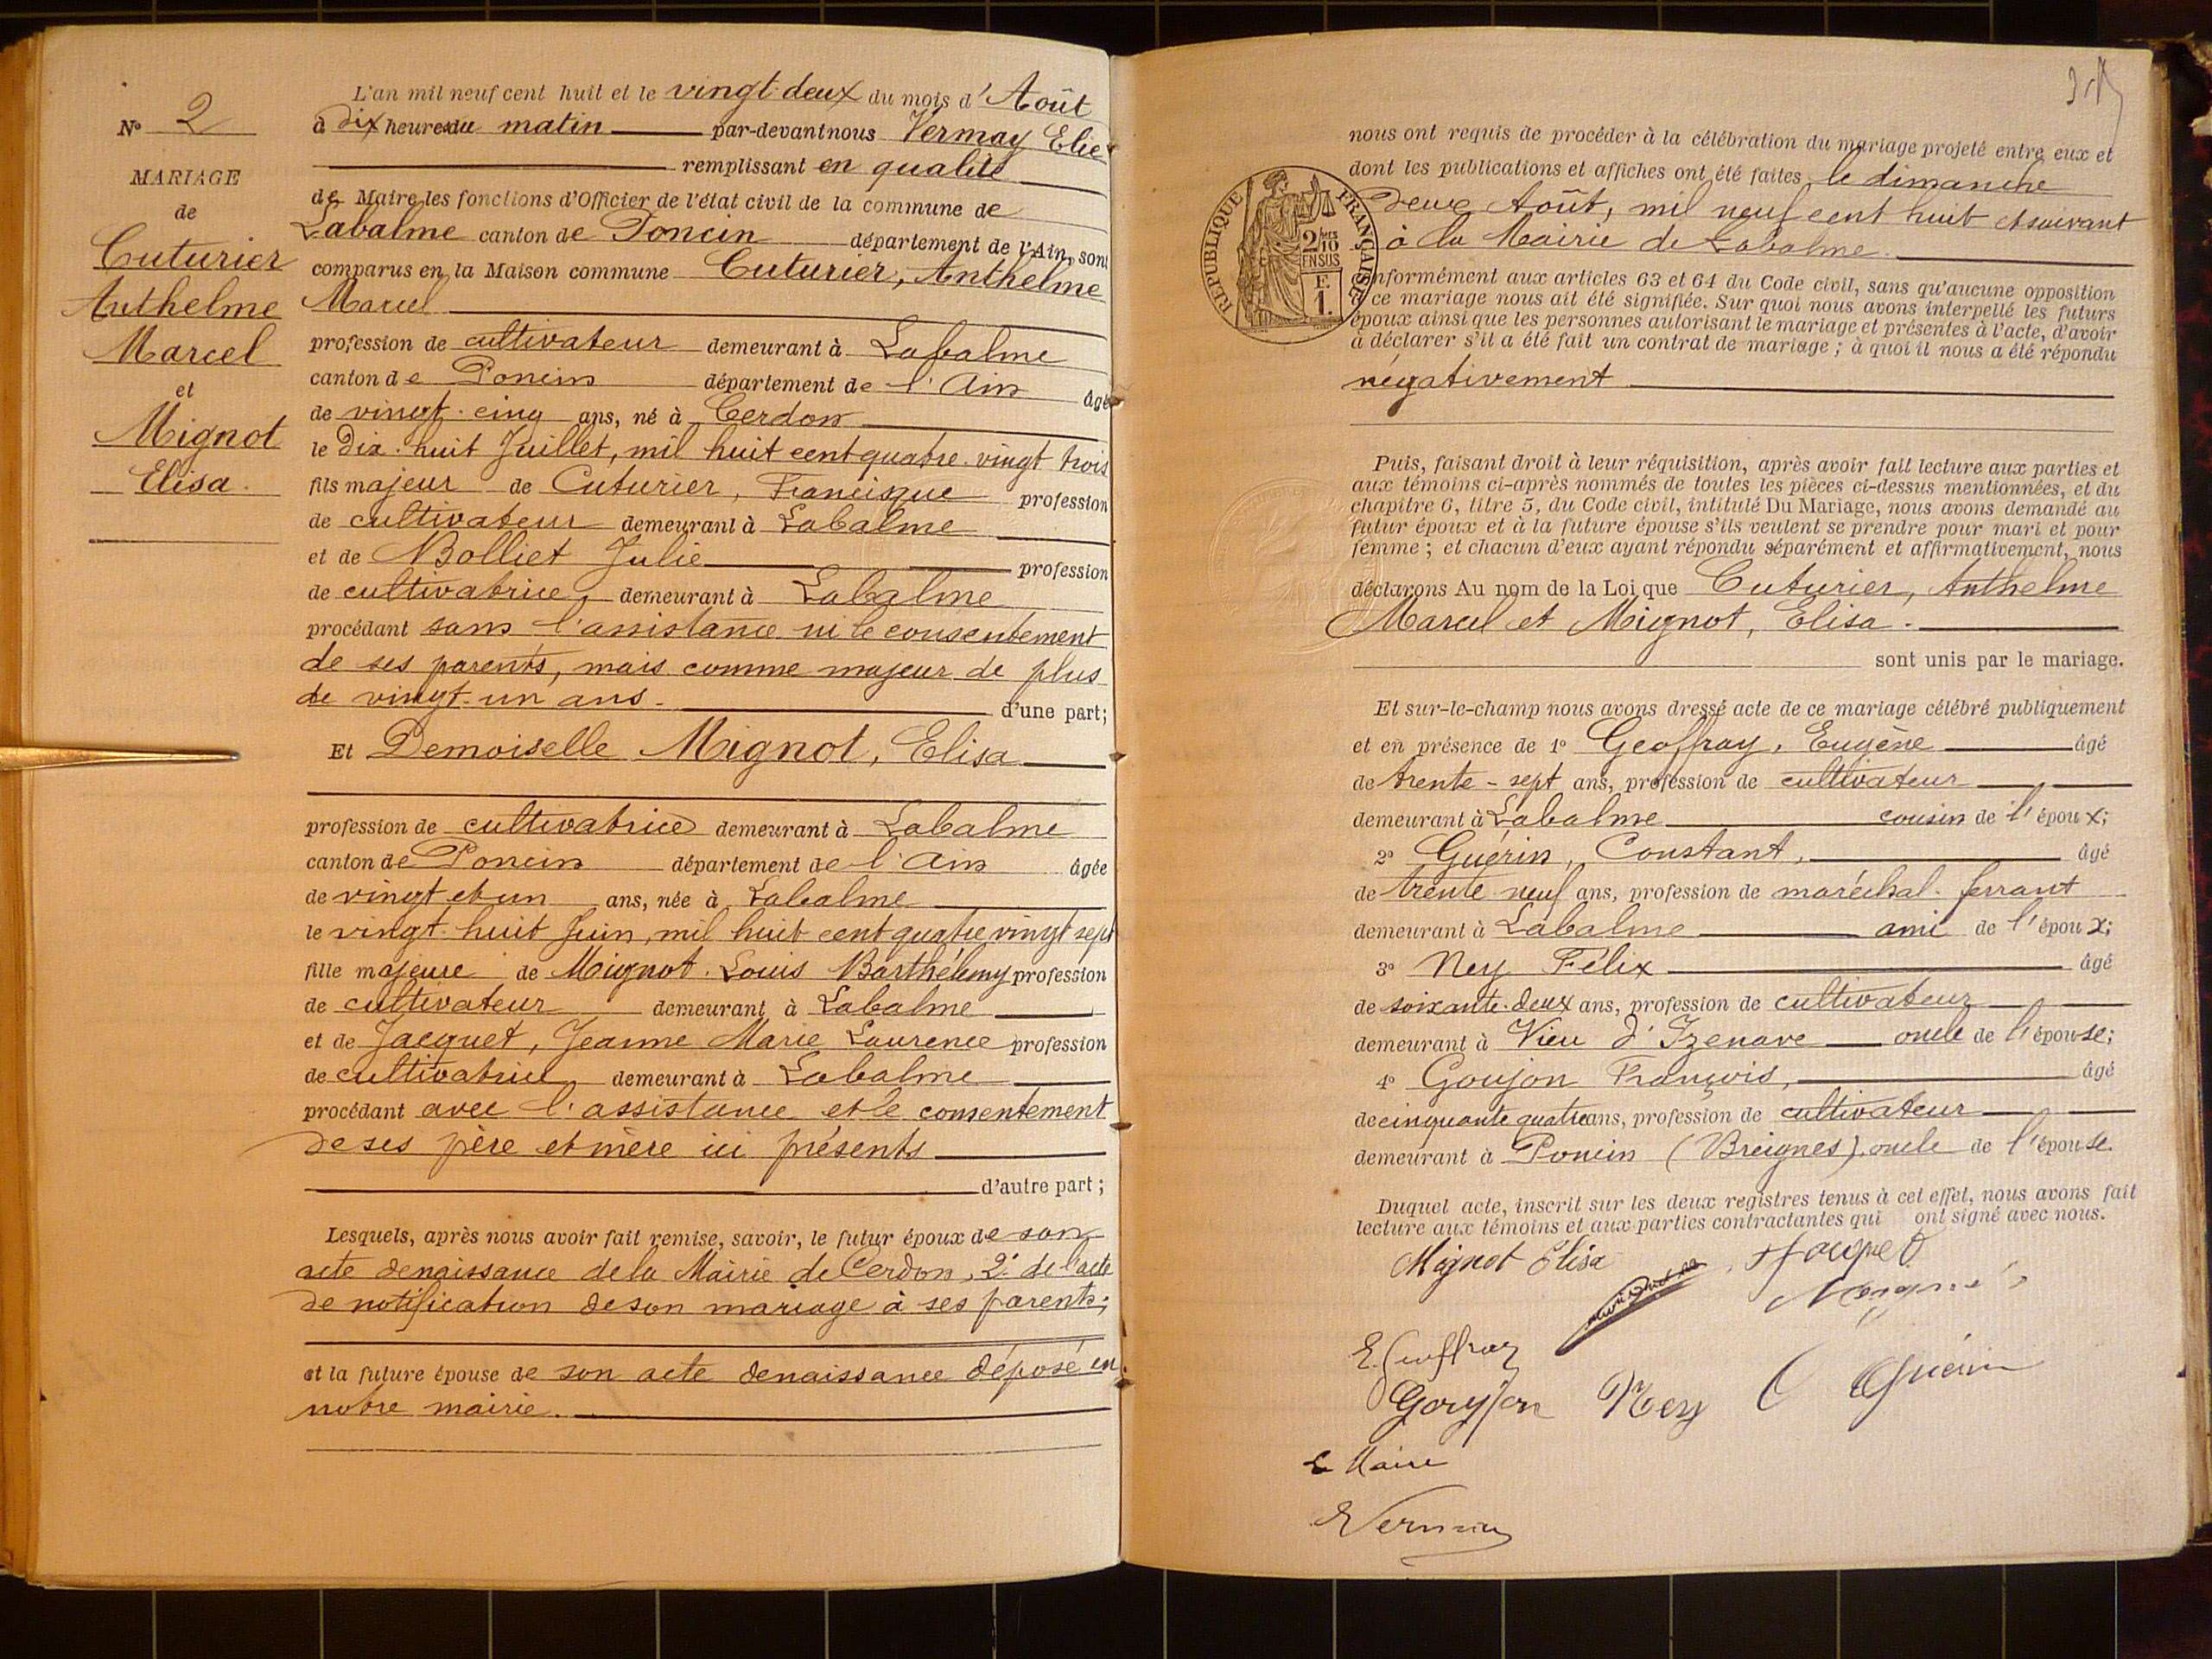 N° 2
MARIAGE
de
Cuturier
Anthelme
Marcel
et
Mignot
Elisa.
L'an mil neuf cent huit et le vingt-deux du mois d'Août
à dix heures du matin par-devant nous Vermay Elie
remplissant en qualité
de Maire les fonctions d'Officier de l'état civil de la commune de
Labalme canton de Poncin département de l'Ain, sont
comparus en la Maison commune Cuturier, Anthelme
Marcel
profession de cultivateur demeurant à Labalme
canton de Poncin département de l'Ain âgé
de vingt-cinq ans, né à Cerdon
le dix-huit Juillet, mil huit cent quatre-vingt trois
fils majeur de Cuturier, Francisque profession
de cultivateur demeurant à Labalme
et de Bolliet Julie profession
de cultivatrice demeurant à Labalme
procédant sans l'assistance ni le consentement
de ses parents, mais comme majeur de plus
de vingt-un ans. d'une part;
Et Demoiselle Mignot, Elisa
profession de cultivatrice demeurant à Labalme
canton de Poncin département de l'Ain âgée
de vingt et un ans, née à Labalme
le vingt-huit Juin, mil huit cent quatre vingt sept
fille majeure de Mignot Louis Barthélemy profession
de cultivateur demeurant à Labalme
et de Jacquet, Jeanne Marie Laurence profession
de cultivatrice demeurant à Labalme
procédant avec l'assistance et le consentement
de ses père et mère ici présents
d'autre part;
Lesquels, après nous avoir fait remise, savoir, le futur époux de son
acte de naissance de la Mairie de Cerdon, 2° de l'acte
de notification de son mariage à ses parents;
et la future épouse de son acte de naissance déposé en
notre mairie.
nous ont requis de procéder à la célébration du mariage projeté entre eux et
dont les publications et affiches ont été faites le dimanche
deux Août, mil neuf cent huit et suivant
à la Mairie de Labalme.
RÉPUBLIQUE FRANÇAISE
2/10
EN SUS
E.
1.
conformément aux articles 63 et 64 du Code civil, sans qu'aucune opposition
ce mariage nous ait été signifiée. Sur quoi nous avons interpellé les futurs
époux ainsi que les personnes autorisant le mariage et présentes à l'acte, d'avoir
à déclarer s'il a été fait un contrat de mariage; à quoi il nous a été répondu
négativement
Puis, faisant droit à leur réquisition, après avoir fait lecture aux parties et
aux témoins ci-après nommés de toutes les pièces ci-dessus mentionnées, et du
chapitre 6, titre 5, du Code civil, intitulé Du Mariage, nous avons demandé au
futur époux et à la future épouse s'ils veulent se prendre pour mari et pour
femme; et chacun d'eux ayant répondu séparément et affirmativement, nous
déclarons Au nom de la Loi que Cuturier, Anthelme
Marcel et Mignot, Elisa.
sont unis par le mariage.
Et sur-le-champ nous avons dressé acte de ce mariage célébré publiquement
et en présence de 1° Geoffray, Eugène âgé
de trente-sept ans, profession de cultivateur
demeurant à Labalme cousin de l'époux;
2° Guérin, Constant, âgé
de trente neuf ans, profession de maréchal-ferrant
demeurant à Labalme ami de l'époux;
3° Ney Félix âgé
de soixante-deux ans, profession de cultivateur
demeurant à Vieu d'Izenave oncle de l'épouse;
4° Goujon François, âgé
de cinquante quatre ans, profession de cultivateur
demeurant à Poncin (Breignes), oncle de l'épouse.
Duquel acte, inscrit sur les deux registres tenus à cet effet, nous avons fait
lecture aux témoins et aux parties contractantes qui ont signé avec nous.
Mignot Elisa
E. Geoffray
Goujon Ney C Guérin
Le Maire
E Vermay